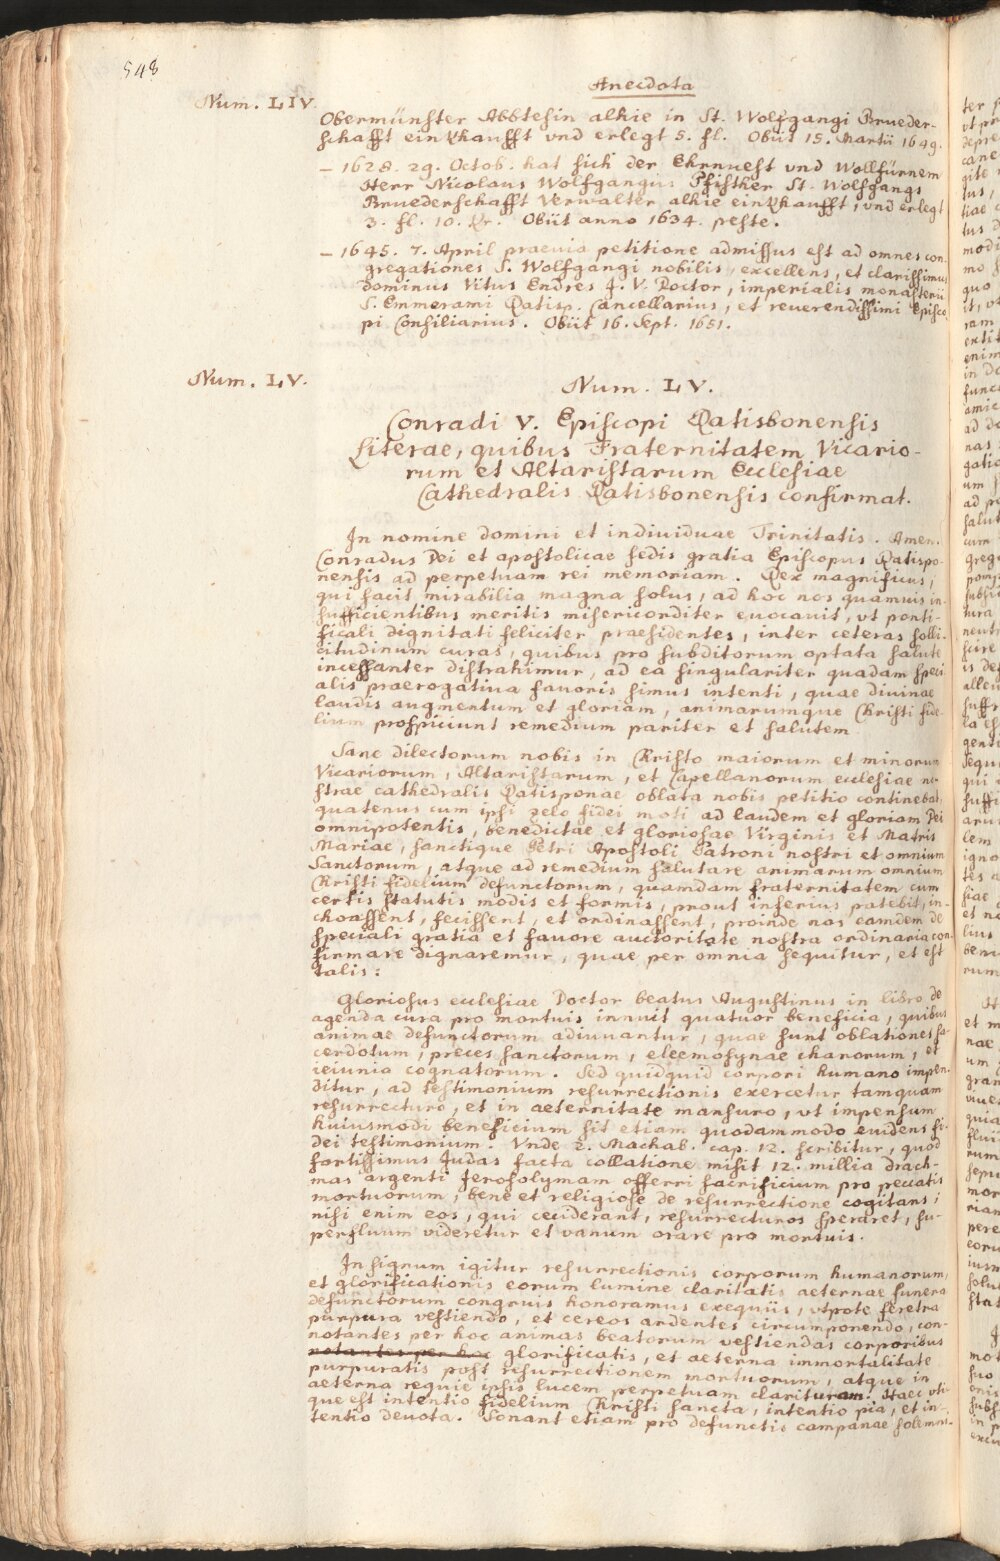 548
Anecdota
Num. LIV.
Obermünster Abbtesin alhie in St. Wolfgangi Brueder-
schafft einkhaufft vnd erlegt 5. fl. Obiit 15. Martii 1649.
– 1628. 29. Octob. hat sich der Ehrnuest vnd Wollfürnem
Herr Nicolaus Wolfgangius Pfisther St. Wolfgangs
Bruederschafft Verwalter alhie einkhaufft, vnd erlegt
3. fl. 10. kr. Obiit anno 1634. peste.
– 1645. 7. April praeuia petitione admissus est ad omnes con-
gregationes S. Wolfgangi nobilis excellens, et clarissimus
dominus Vitus Endres J. V. Doctor, imperialis monasterii
S. Emmerami Ratisp. Cancellarius, et reuerendissimi Episco-
pi Consiliarius. Obiit 16. Sept. 1651.
Num. LV.
Num. LV.
Conradi V. Episcopi Ratisbonensis
Literae, quibus Fraternitatem Vicario-
rum et Altaristarum Ecclesiae
Cathedralis Ratisbonensis confirmat.
In nomine domini et indiuiduae Trinitatis. Amen.
Conradus Dei et apostolicae sedis gratia Episcopus Ratispo-
nensis ad perpetuam rei memoriam. Rex magnificus,
qui facit mirabilia magna solus, ad hoc nos quamuis in-
sufficientibus meritis misericorditer euocauit, vt ponti-
ficali dignitati feliciter praesidentes, inter ceteras solli-
citudinum curas, quibus pro subditorum optata salute
incessanter distrahimur, ad ea singulariter quadam speci-
alis praerogatiua fauoris simus intenti, quae diuinae
laudis augmentum et gloriam, animarumque Christi fide-
lium prospiciunt remedium pariter et salutem
Sane dilectorum nobis in Christo maiorum et minorum
Vicariorum, Altaristarum, et Capellanorum ecclesiae no-
strae cathedralis Ratisponae oblata nobis petitio continebat,
quatenus cum ipsi zelo fidei moti ad laudem et gloriam Dei
omnipotentis, benedictae et gloriosae Virginis et Matris
Mariae, sanctique Petri Apostoli Patroni nostri et omnium
Sanctorum, atque ad remedium salutare animarum omnium
Christi fidelium defunctorum, quamdam fraternitatem cum
certis statutis modis et formis, prout inferius patebit, in-
choassent, fecissent, et ordinassent, proinde nos eamdem de
speciali gratia et fauore auctoritate nostra ordinaria con-
firmare dignaremur, quae per omnia sequitur, et est
talis:
Gloriosus ecclesiae Doctor beatus Augustinus in libro de
agenda cura pro mortuis innuit quatuor beneficia, quibus
animae defunctorum adiuuantur, quae sunt oblationes sa-
cerdotum, preces sanctorum, eleemosynae charorum, et
ieiunia cognatorum. Sed quidquid corpori humano impen-
ditur, ad testimonium resurrectionis exercetur tamquam
resurrecturo, et in aeternitate mansuro, vt impensum
huiusmodi beneficium sit etiam quodammodo euidens fi-
dei testimonium. Vnde 2. Machab. cap. 12. scribitur, quod
fortissimus Judas facta collatione misit 12. millia drach-
mas argenti Jerosolymam offerri sacrificium pro peccatis
mortuorum, bene et religiose de resurrectione cogitans;
nisi enim eos, qui ceciderant, resurrecturos speraret, su-
perfluum videretur et vanum orare pro mortuis.
In signum igitur resurrectionis corporum humanorum,
et glorificationis eorum lumine claritatis aeternae funera
defunctorum congruis honoramus exequiis, vtpote feretra
purpura vestiendo, et cereos ardentes circumponendo, con-
notantes per hoc animas beatorum vestiendas corporibus
notantes per hoc glorificatis, et aeterna immortalitate
purpuratis post resurrectionem mortuorum, atque in
aeterna requie ipsis lucem perpetuam clarituram. Haec vti-
que est intentio fidelium Christi sancta, intentio pia, et in-
tentio deuota. Sonant etiam pro defunctis campanae solemni-